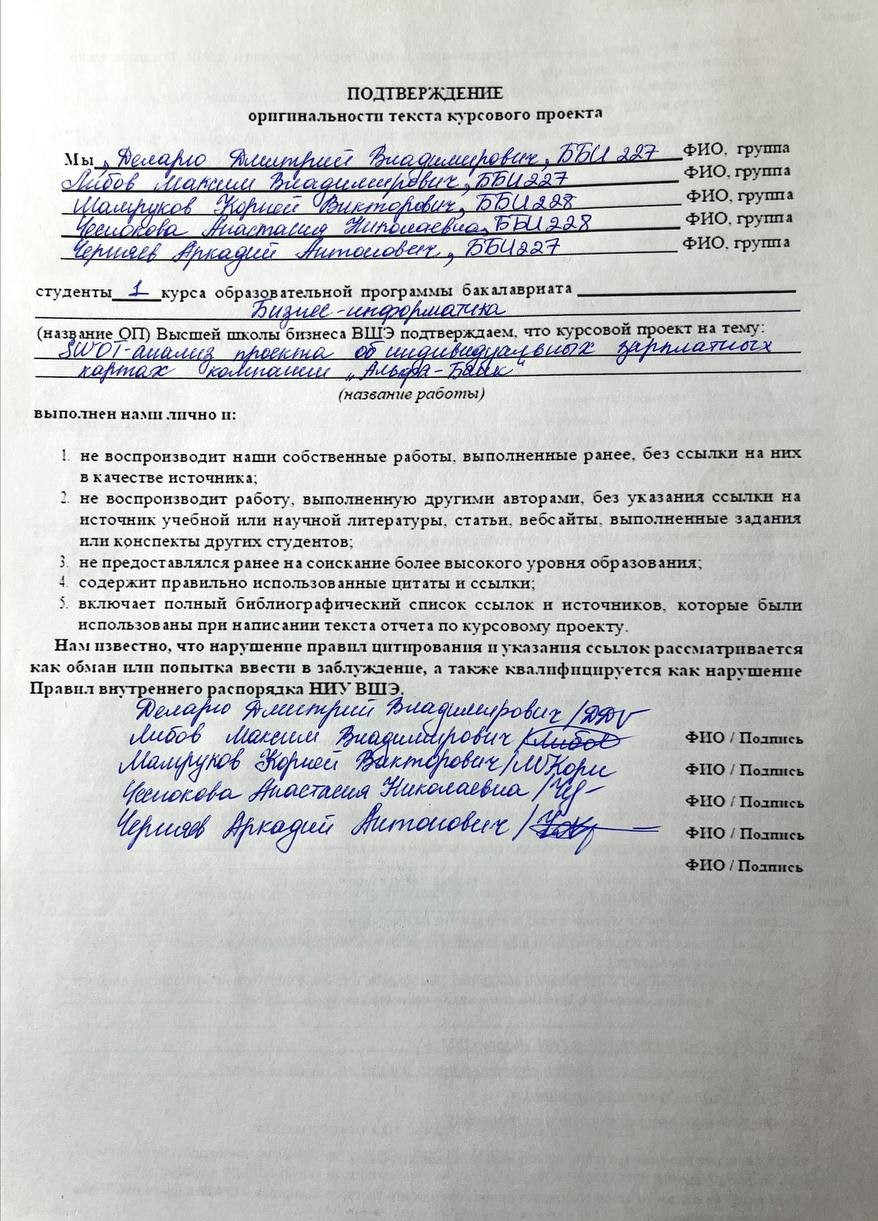 ПОДТВЕРЖДЕНИЕ
оригинальности текста курсового проекта
Мы, Деларю Дмитрий Владимирович, ББИ 227 ФИО, группа
Либов Максим Владимирович, ББИ227 ФИО, группа
Мамруков Корней Викторович, ББИ228 ФИО, группа
Чеснокова Анастасия Николаевна, ББИ228 ФИО, группа
Черняев Аркадий Антонович, ББИ227 ФИО, группа
студенты 1 курса образовательной программы бакалавриата
Бизнес-информатика
(название ОП) Высшей школы бизнеса ВШЭ подтверждаем, что курсовой проект на тему:
SWOT-анализ проекта об индивидуальных зарплатных
картах компании „Альфа-Банк“
(название работы)
выполнен нами лично и:
1. не воспроизводит наши собственные работы, выполненные ранее, без ссылки на них
в качестве источника;
2. не воспроизводит работу, выполненную другими авторами, без указания ссылки на
источник учебной или научной литературы, статьи, вебсайты, выполненные задания
или конспекты других студентов;
3. не предоставлялся ранее на соискание более высокого уровня образования;
4. содержит правильно использованные цитаты и ссылки;
5. включает полный библиографический список ссылок и источников, которые были
использованы при написании текста отчета по курсовому проекту.
Нам известно, что нарушение правил цитирования и указания ссылок рассматривается
как обман или попытка ввести в заблуждение, а также квалифицируется как нарушение
Правил внутреннего распорядка НИУ ВШЭ.
Деларю Дмитрий Владимирович /
Либов Максим Владимирович / Либов ФИО / Подпись
Мамруков Корней Викторович / ФИО / Подпись
Чеснокова Анастасия Николаевна / ФИО / Подпись
Черняев Аркадий Антонович / ФИО / Подпись
ФИО / Подпись